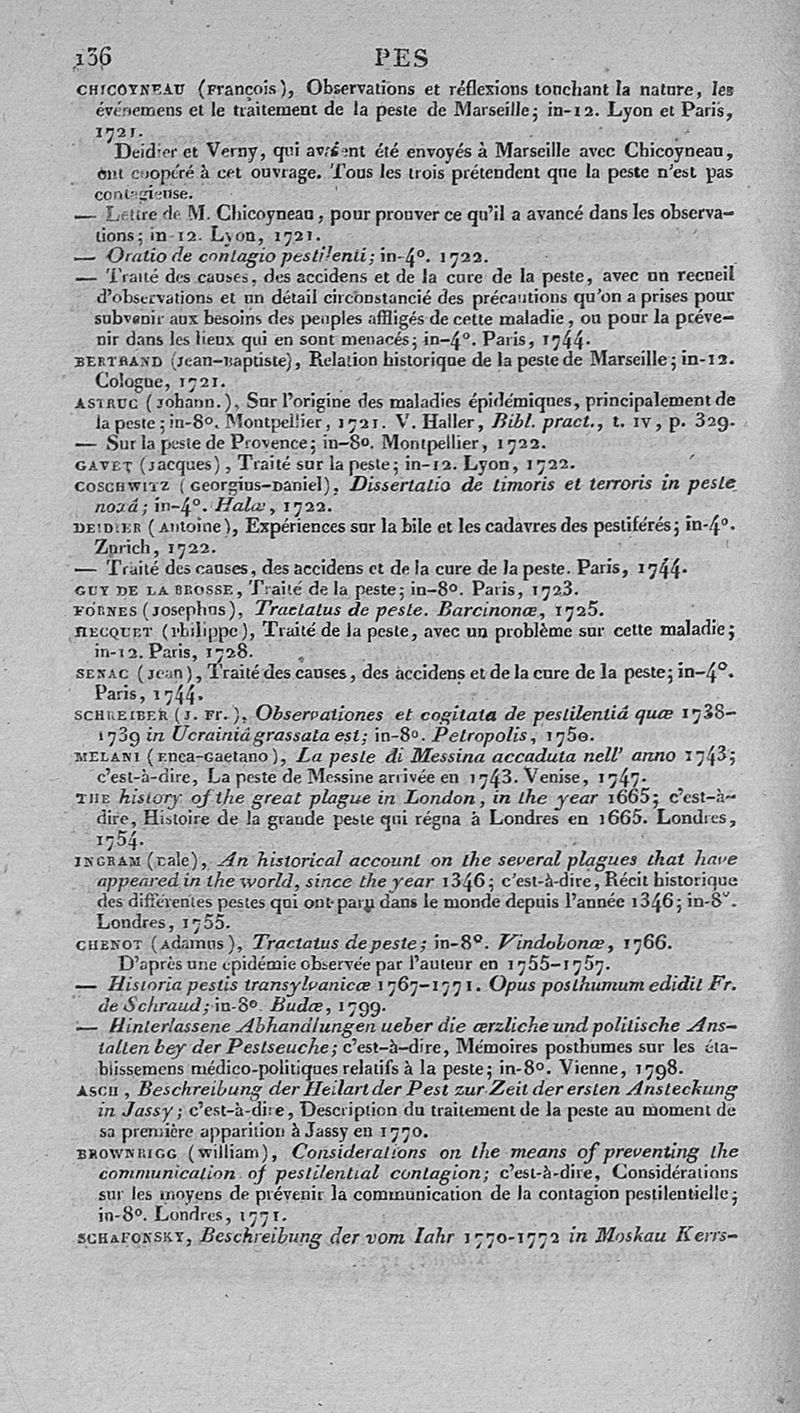 136 PES
CHICOYNEAU (François), Observations et réflexions touchant la nature, les
événemens et le traitement de la peste de Marseille; in-12. Lyon et Paris,
1721.
Deidier et Verny, qui avaient été envoyés à Marseille avec Chicoyneau,
ont coopéré à cet ouvrage. Tous les trois prétendent que la peste n'est pas
contagieuse.
— Lettre de M. Chicoyneau, pour prouver ce qu'il a avancé dans les observa-
tions; in-12. Lyon, 1721.
— Oratio de contagio pestilenti; in-4°. 1722.
— Traité des causes, des accidens et de la cure de la peste, avec un recueil
d'observations et un détail circonstancié des précautions qu'on a prises pour
subvenir aux besoins des peuples affligés de cette maladie, ou pour la préve-
nir dans les lieux qui en sont menacés; in-4°. Paris, 1744.
BERTRAND (Jean-Baptiste), Relation historique de la peste de Marseille; in-12.
Cologne, 1721.
ASTRUC (Johann.), Sur l'origine des maladies épidémiques, principalement de
la peste; in-8°. Montpellier, 1721. V. Haller, Bibl. pract., t. IV, p. 329.
— Sur la peste de Provence; in-8o. Montpellier, 1722.
GAVET (Jacques), Traité sur la peste; in-12. Lyon, 1722.
COSCHWITZ (Georgius-Daniel), Dissertatio de timoris et terroris in peste
noxâ; in-4°. Halæ, 1722.
DEIDIER (Antoine), Expériences sur la bile et les cadavres des pestiférés; in-4°.
Zurich, 1722.
— Traité des causes, des accidens et de la cure de la peste. Paris, 1744.
GUY DE LA BROSSE, Traité de la peste; in-8o. Paris, 1723.
FORNES (Josephus), Tractatus de peste. Barcinonæ, 1725.
HECQUET (Philippe), Traité de la peste, avec un problème sur cette maladie;
in-12. Paris, 1728.
SENAC (Jean), Traité des causes, des accidens et de la cure de la peste; in-4°.
Paris, 1744.
SCHREIBER (J. Fr.), Observationes et cogitata de pestilentiâ quæ 1738-
1739 in Ucrainiâ grassata est; in-8o. Petropolis, 1750.
MELANI (Enea-Gaetano), La peste di Messina accaduta nell' anno 1743;
c'est-à-dire, La peste de Messine arrivée en 1743. Venise, 1747.
THE history of the great plague in London, in the year 1665; c'est-à-
dire, Histoire de la grande peste qui régna à Londres en 1665. Londres,
1754.
INGRAM (Dale), An historical account on the several plagues that have
appeared in the world, since the year 1346; c'est-à-dire, Récit historique
des différentes pestes qui ont paru dans le monde depuis l'année 1346; in-8°.
Londres, 1755.
CHENOT (Adamus), Tractatus de peste; in-8°. Vindobonæ, 1766.
D'après une épidémie observée par l'auteur en 1755-1757.
— Historia pestis transylvanicæ 1767-1771. Opus posthumum edidit Fr.
de Schraud; in-8o. Budæ, 1799.
— Hinterlassene Abhandlungen ueber die ærzliche und politische Ans-
talten bey der Pestseuche; c'est-à-dire, Mémoires posthumes sur les éta-
blissemens médico-politiques relatifs à la peste; in-8o. Vienne, 1798.
ASCH, Beschreibung der Heilart der Pest zur Zeit der ersten Ansteckung
in Jassy; c'est-à-dire, Description du traitement de la peste au moment de
sa première apparition à Jassy en 1770.
BROWNRIGG (William), Considerations on the means of preventing the
communication of pestilential contagion; c'est-à-dire, Considérations
sur les moyens de prévenir la communication de la contagion pestilentielle;
in-8o. Londres, 1771.
SCHAFONSKY, Beschreibung der vom Iahr 1770-1772 in Moskau Kerrs-